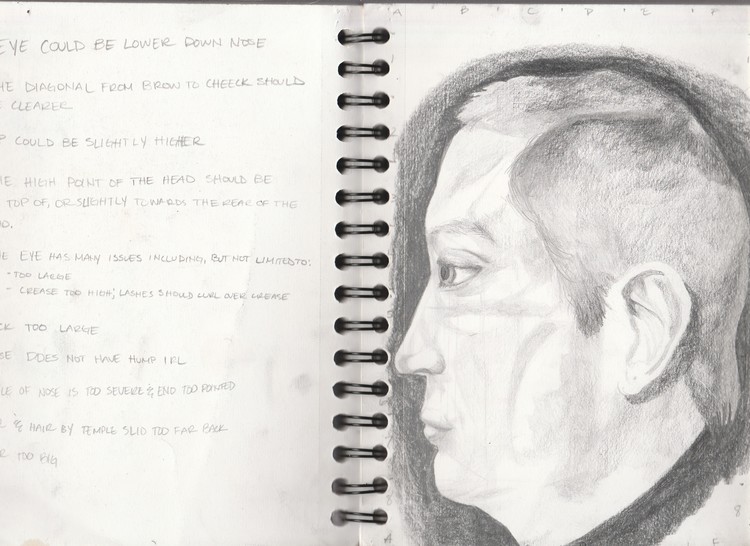 EYE COULD BE LOWER DOWN NOSE
HE DIAGONAL FROM BROW TO CHEECK SHOULD
E CLEARER
P COULD BE SLIGHTLY HIGHER
HE HIGH POINT OF THE HEAD SHOULD BE
TOP OF, OR SLIGHTLY TOWARDS THE REAR OF THE
D.
HE EYE HAS MANY ISSUES INCLUDING, BUT NOT LIMITED TO:
- TOO LARGE
- CREASE TOO HIGH; LASHES SHOULD CURL OVER CREASE
CK TOO LARGE
SE DOES NOT HAVE HUMP IRL
LE OF NOSE IS TOO SEVERE & END TOO POINTED
R & HAIR BY TEMPLE SLID TOO FAR BACK
R TOO BIG
A B C D E F
A F
8